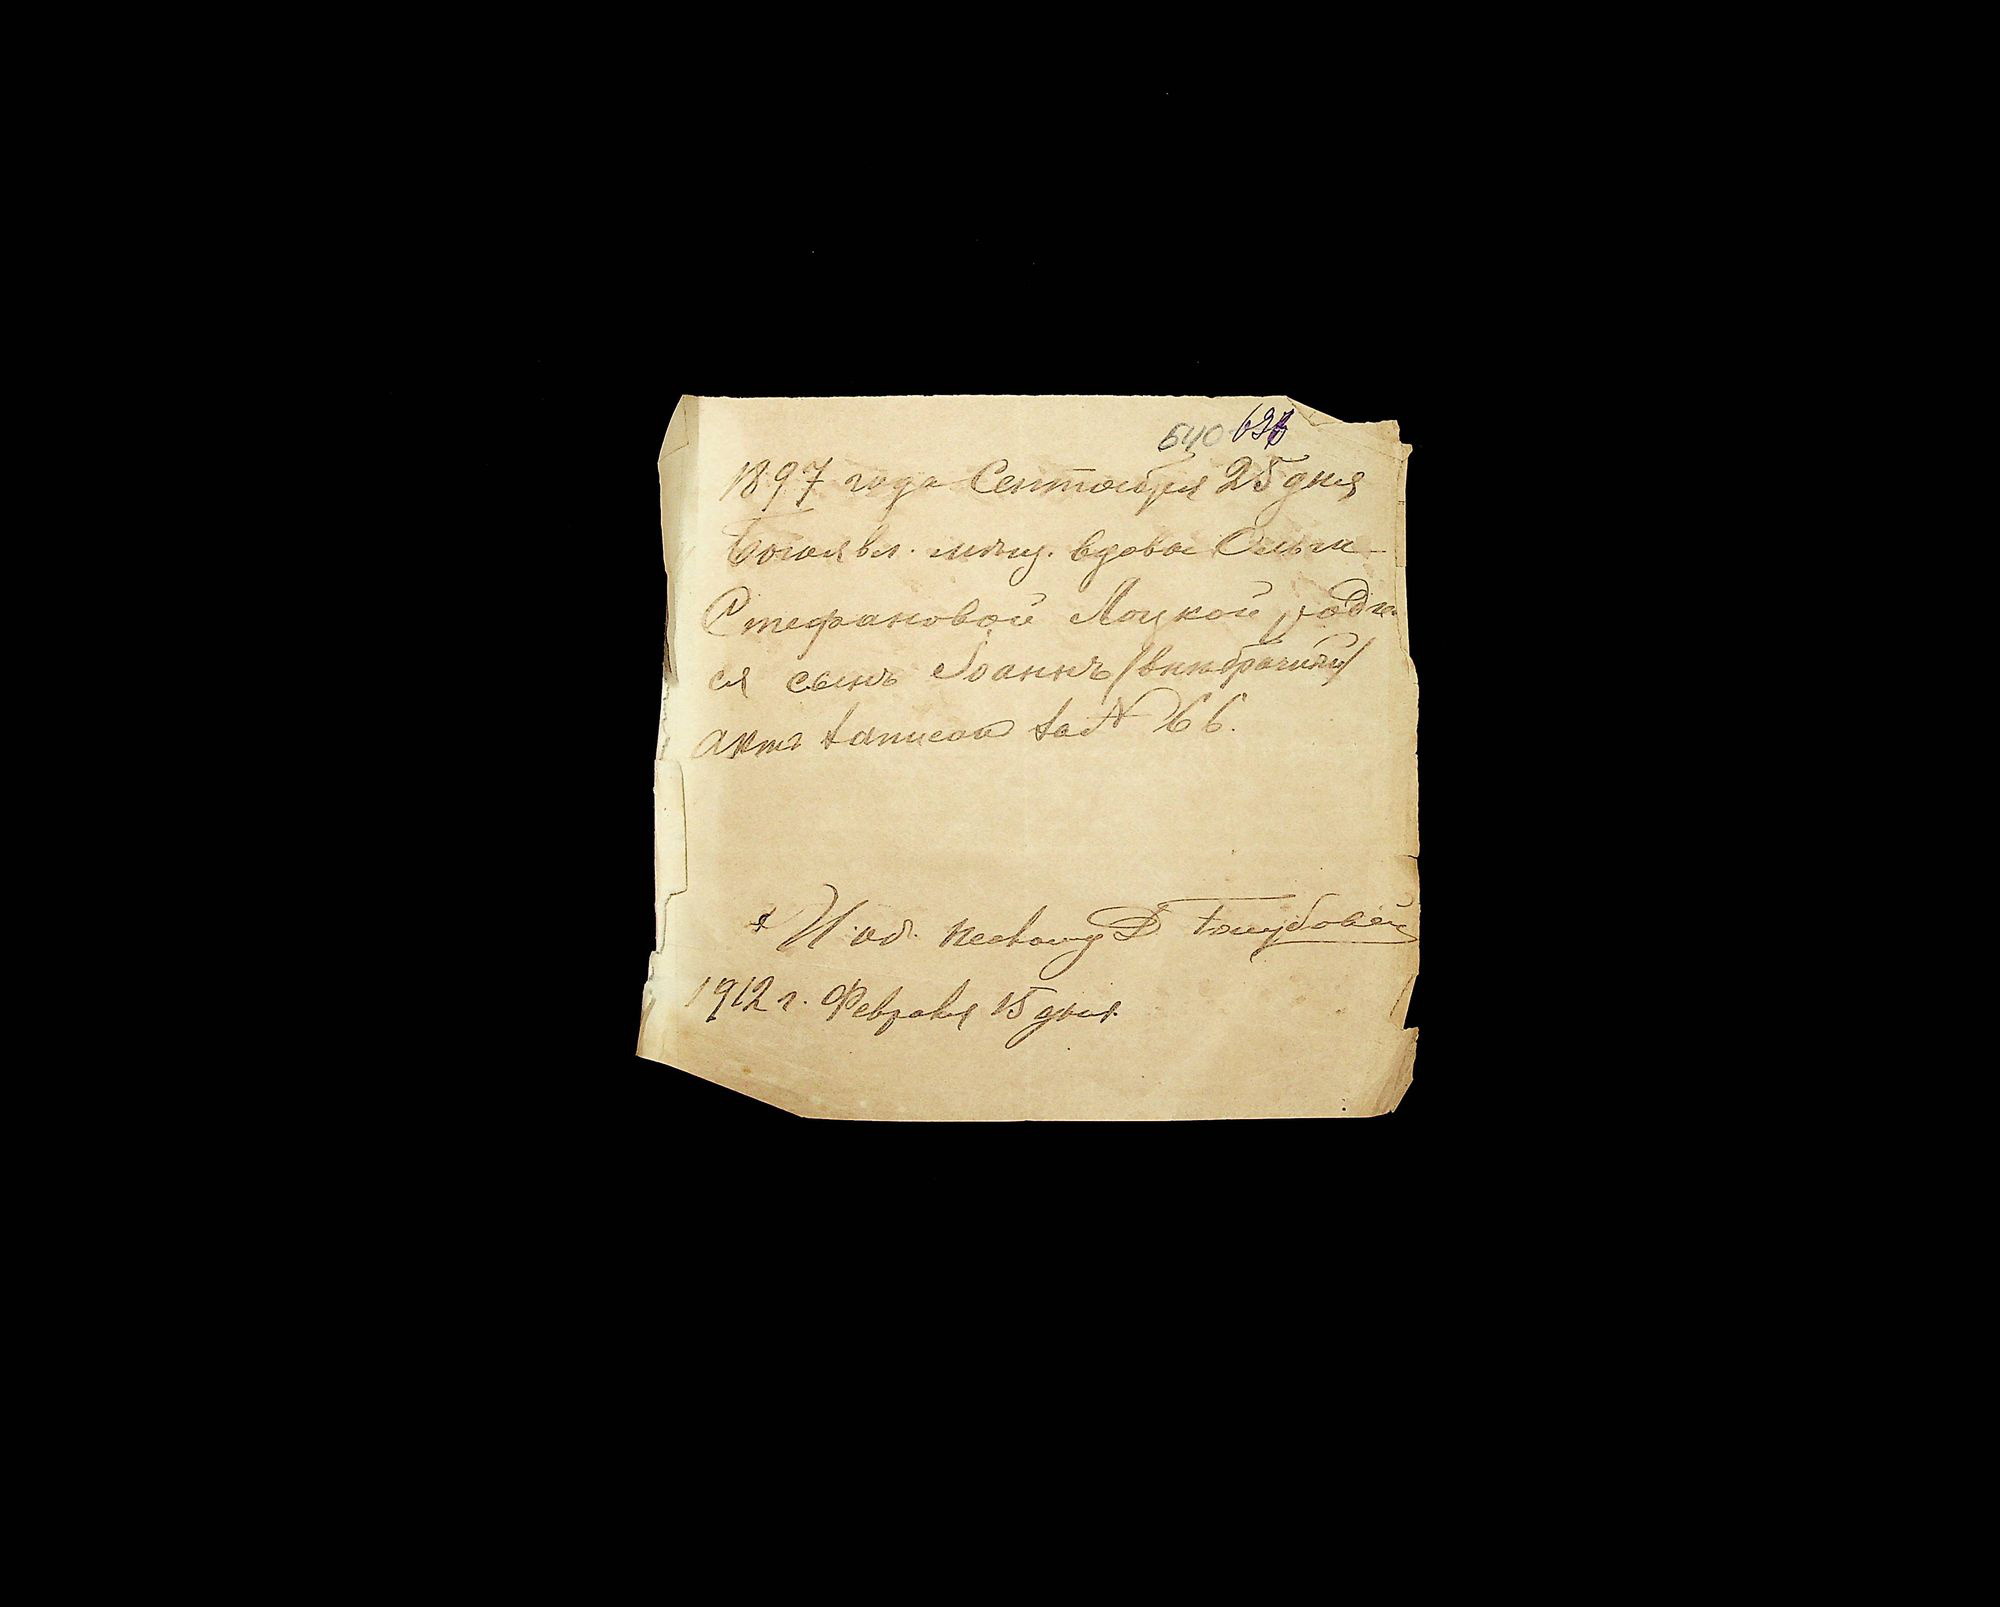 640
1897 года Сентября 25 дня
Богоявл. мѣщ. вдова Ольги
Стефановой Лоцкой родил
ся сынъ Іоаннъ /внѣбрачный/
актъ записан за № 66.
И. об. псаломщ Д. Голубович
1912 г. Февраля 15 дня.